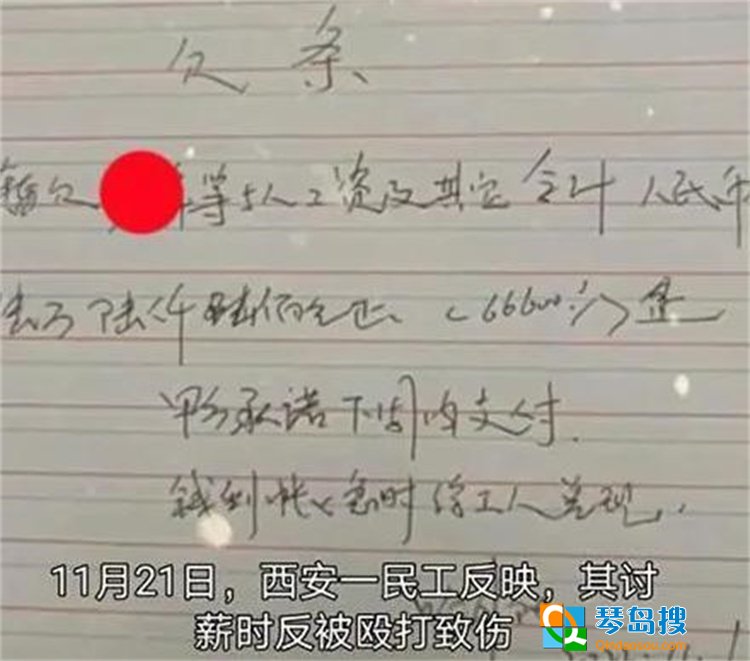 欠条
等5人工资及其它合计人民币
陆万陆仟陆佰元正（66600
甲方承诺下周内支付.
钱到帐上急时给工人兑现.
11月21日，西安一民工反映，其讨
薪时反被殴打致伤
琴岛搜